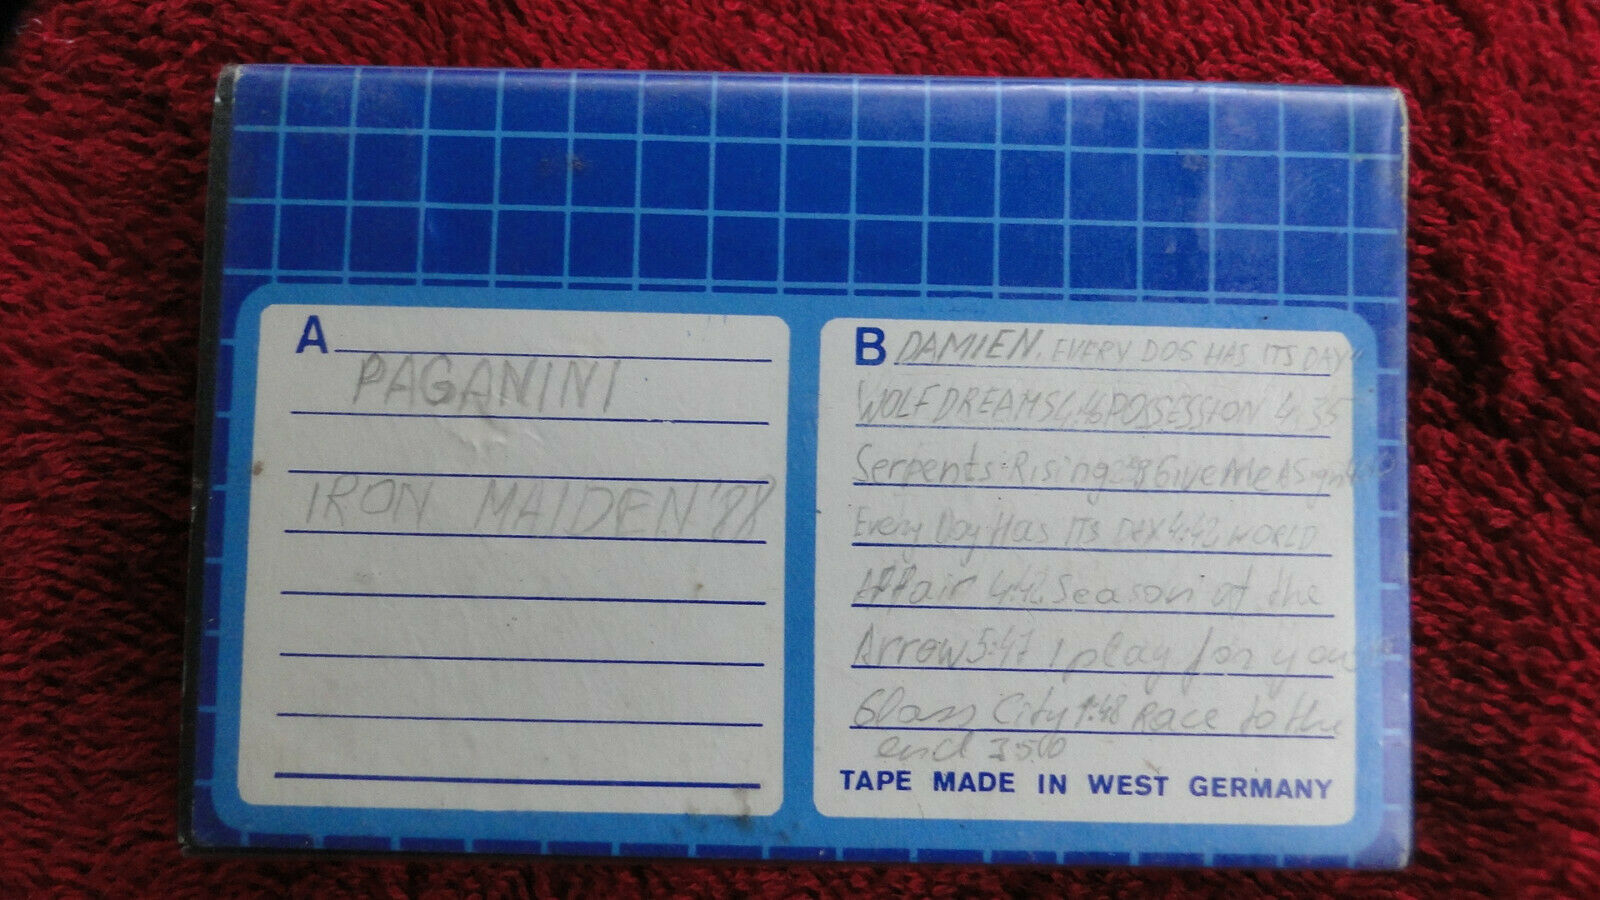 A
PAGANINI
IRON MAIDEN '88
B DAMIEN. EVERY DOG HAS ITS DAY"
WOLFDREAMS 4:46 POSSESSION 4:35
Serpents Rising Give Me A Sign
Every Day Has ITS DAY 4:42 WORLD
Affair 4:42 Season of the
Arrow 5:47 I play for you
Glass City 1:48 Race to the
end
TAPE MADE IN WEST GERMANY